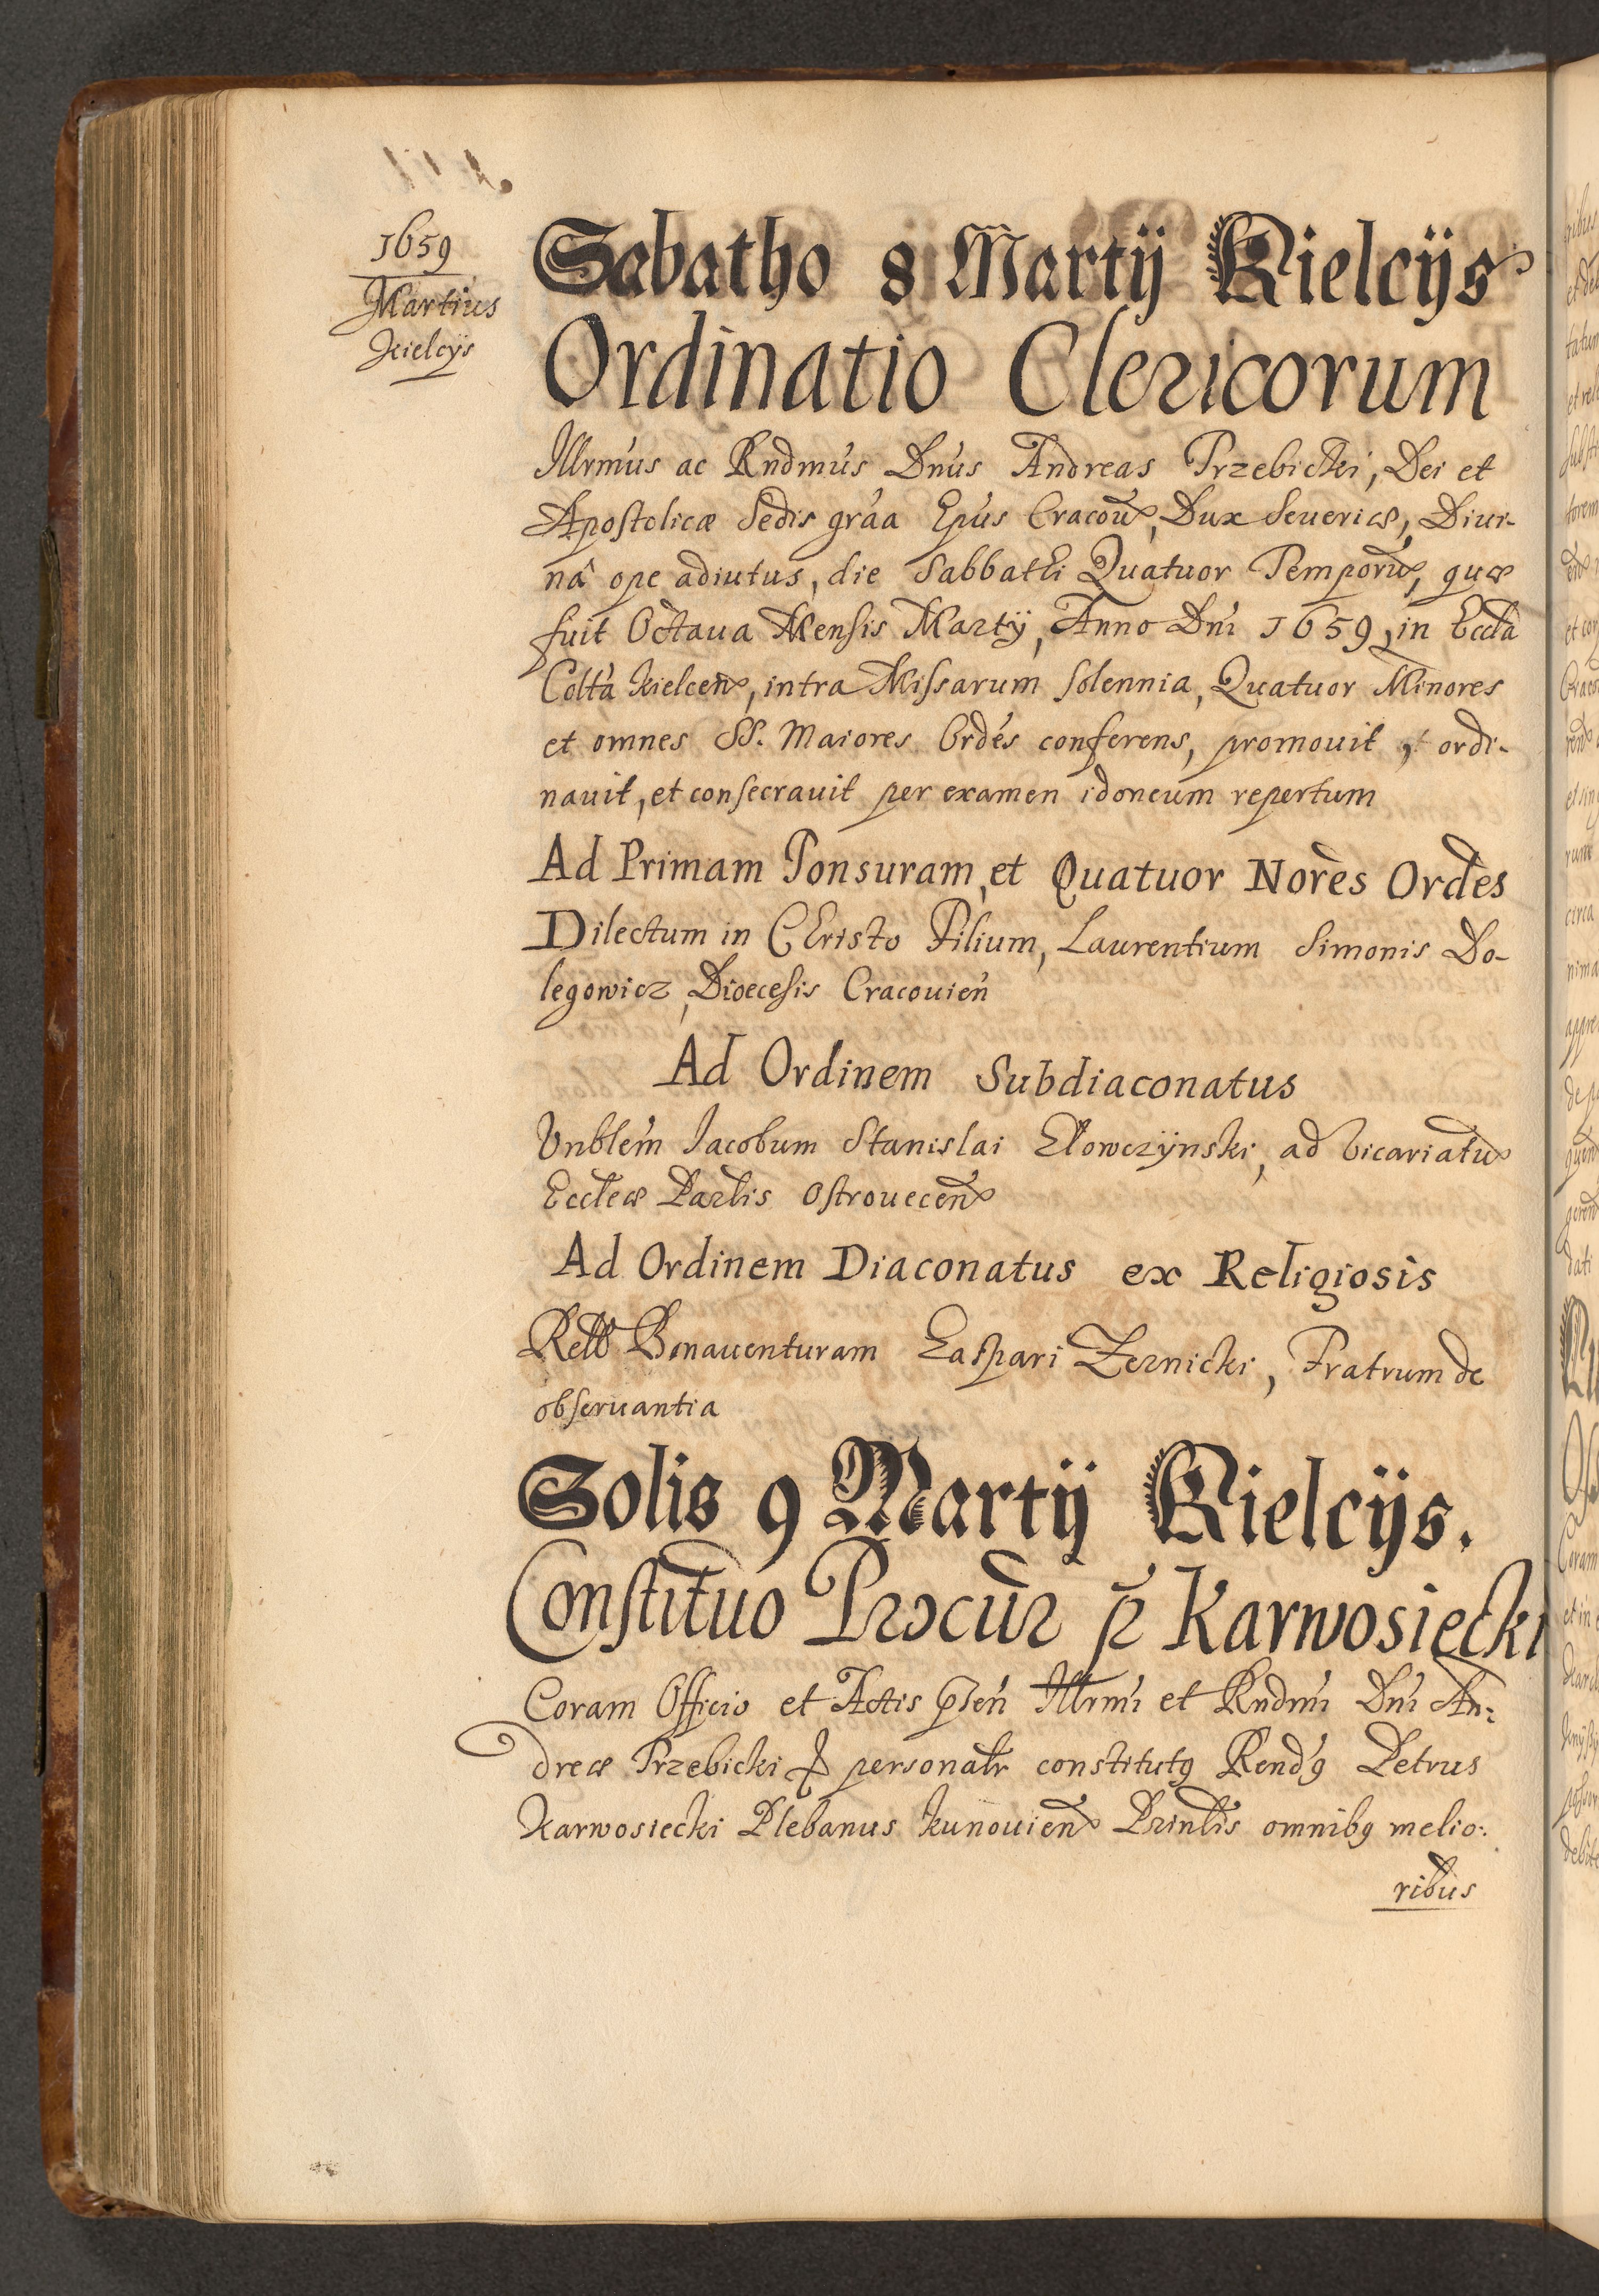 1659
Martius
Kielcÿs
Sabatho 8 Martÿ Kielcÿs
Ordinatio Clericorum
Illrmus ac Rndmus Dnus Andreas Trzebicki, Dei et
Apostolicæ Sedis gráa Epus Cracoue, Dux Seueriæ, Diui-
nâ ope adiutus, die Sabbathi Quatuor Temporu, quæ
fuit Octaua Mensis Martÿ, Anno Dni 1659, in Eccla
Colta Kielcen, intra Missarum solennia, Quatuor Minores
et omnes SS. Maiores Ordes conferens, promouit, et ordi-
nauit, et consecrauit per examen idoneum repertum
Ad Primam Tonsuram, et Quatuor Nores Ordes
Dilectum in Christo Filium, Laurentium Simonis Do-
legowicz, Dioecesis Cracouien
Ad Ordinem Subdiaconatus
Vnblem Iacobum Stanislai Elowczÿnski, ad vicariatu
Eccleæ Parlis Ostrouecen
Ad Ordinem Diaconatus ex Religiosis
Bonauenturam Caspari Zernicki, Fratrum de
obseruantia
Solis 9 Martÿ Kielcÿs.
Constituo Procur p Karwosiecki
Coram Officio et Actis pnsen Illrmi et Rndmi Dni An:
dreæ Trzebicki personalr constitutq Rendq Petrus
Karwosiecki Plebanus Kunouien Prinlis omnibq melio:
ribus